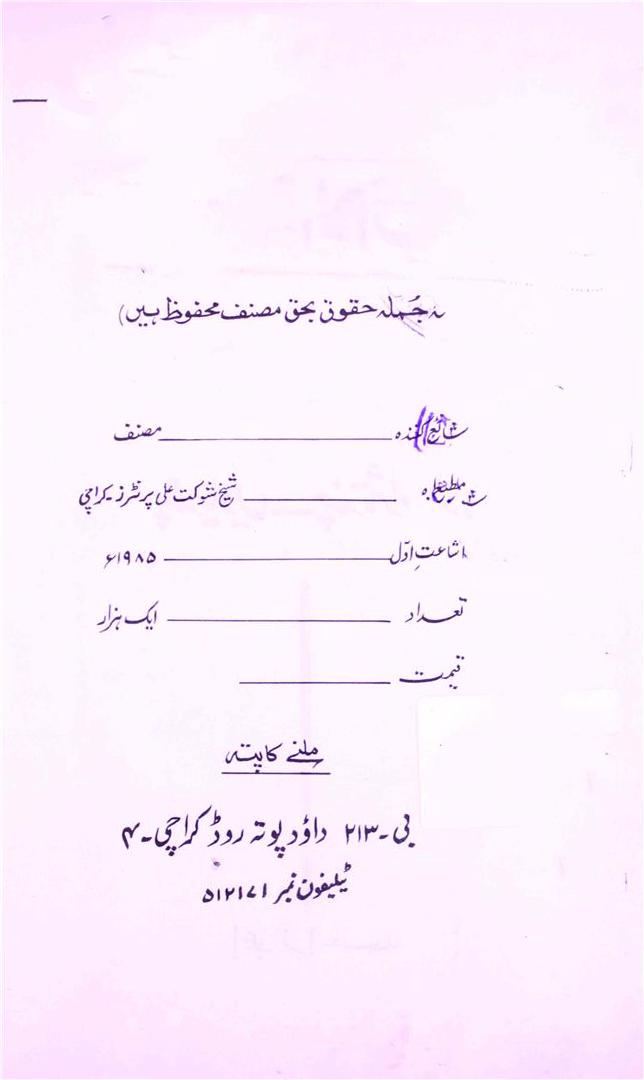 جُملہ حقوق بحق مصنف محفوظ ہیں)
شائع کنندہ ــــــــــ مصنف
ــــــــــ شیخ شوکت علی پرنٹرز۔کراچی
اشاعتِ اوّل ــــــــــ ۱۹۸۵ء
تعداد ــــــــــ ایک ہزار
قیمت ــــــــــ
ملنے کا پتہ
بی-۲۱۳ داؤد پوتہ روڈ کراچی-۴
ٹیلیفون نمبر ۵۱۲۱۷۱